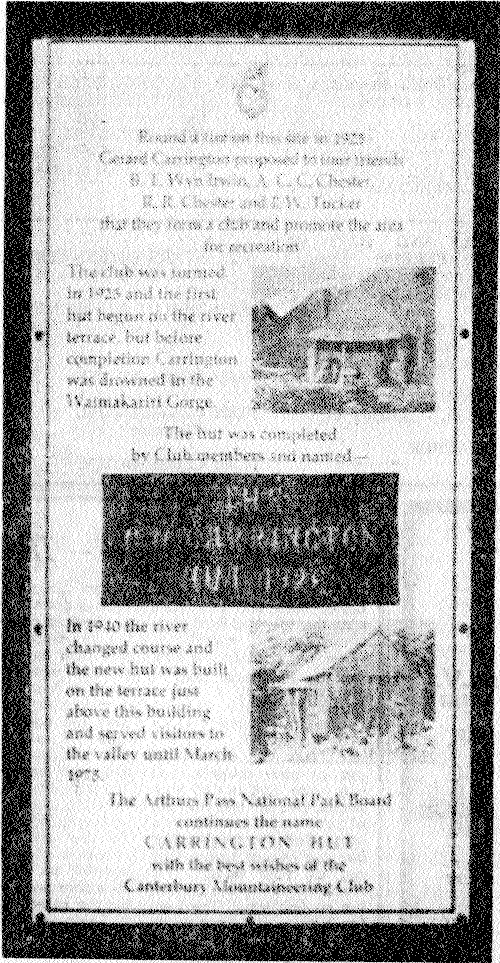 Round a fire on this site in 1925
Gerard Carrington proposed to four friends
B. T. Wyn Irwin, A. C. C. Chester,
R. R. Chester and F. W. Tucker
that they form a club and promote the area
for recreation
The club was formed
in 1925 and the first
hut begun on the river
terrace, but before
completion Carrington
was drowned in the
Waimakariri Gorge
The hut was completed
by Club members and named—
THE
CARRINGTON
HUT
In 1940 the river
changed course and
the new hut was built
on the terrace just
above this building
and served visitors to
the valley until March
1975.
The Arthurs Pass National Park Board
continues the name
CARRINGTON HUT
with the best wishes of the
Canterbury Mountaineering Club